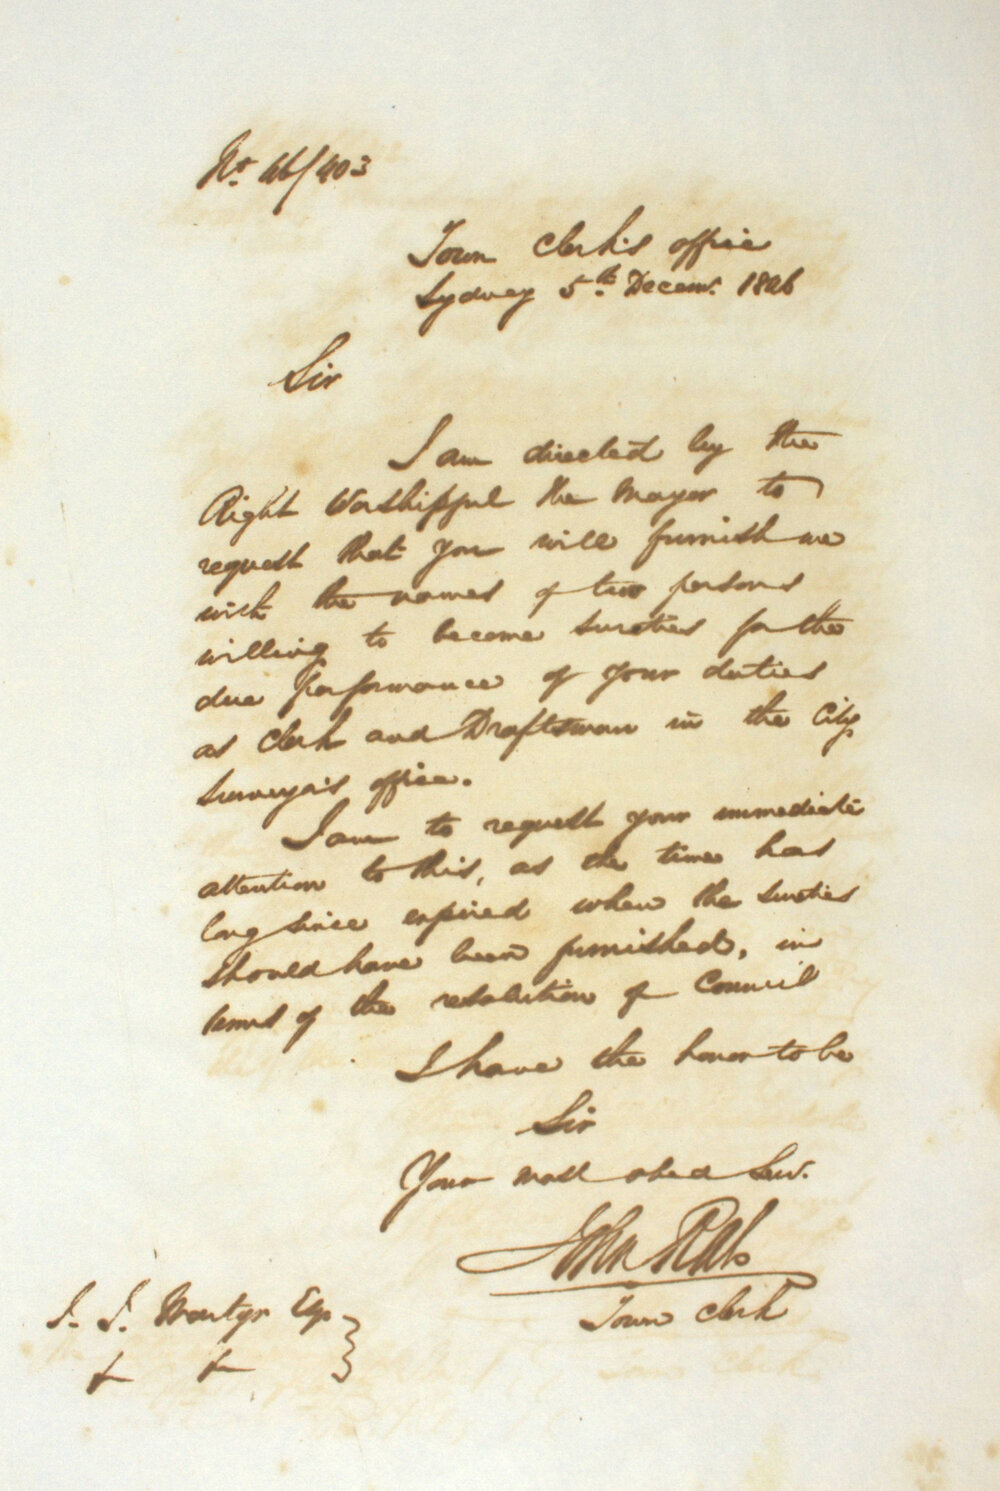 No. 46/403
Town Clerk's office
Sydney 5th. Decemr. 1846
Sir
I am directed by the
Right Worshipful the Mayor to
request that you will furnish me
with the names of two persons
willing to become sureties for the
due performance of your duties
as Clerk and Draftsman in the City
Surveyor's office.
I am to request your immediate
attention to this, as the time has
long since expired when the sureties
should have been furnished, in
terms of the resolution of Council
I have the honor to be
Sir
Your most obed Serv.
John Rae
Town Clerk
J. J. Martyr Esq